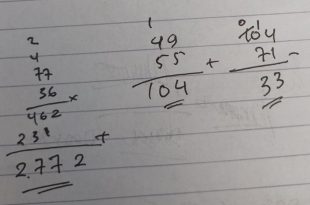 2
4
77
36 ×
462
231 +
2772
1
49
55 +
104
0 1
104
71 -
33